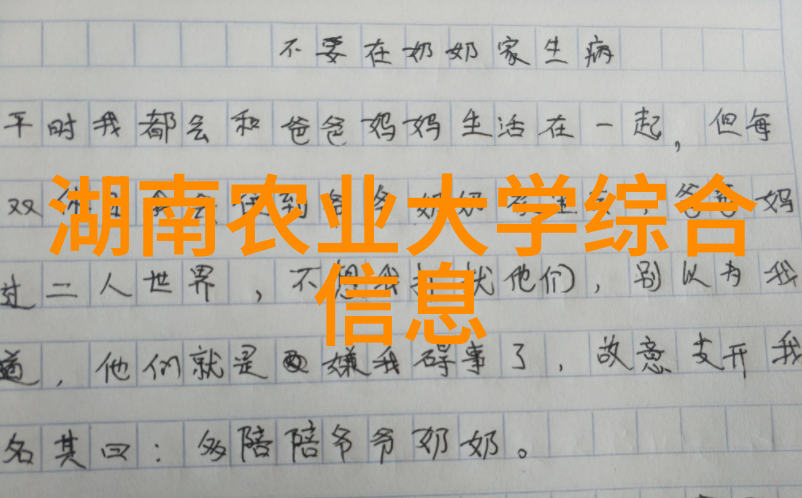 不要在奶奶家生病
平时我都会和爸爸妈妈生活在一起，但每
双休日我会住到爷爷奶奶
湖南农业大学综合
爸爸妈
过二人世界，不想我打扰他们，别以为我
信息
道，他们就是嫌我碍事了，故意支开我
名其曰：多陪陪爷爷奶奶。